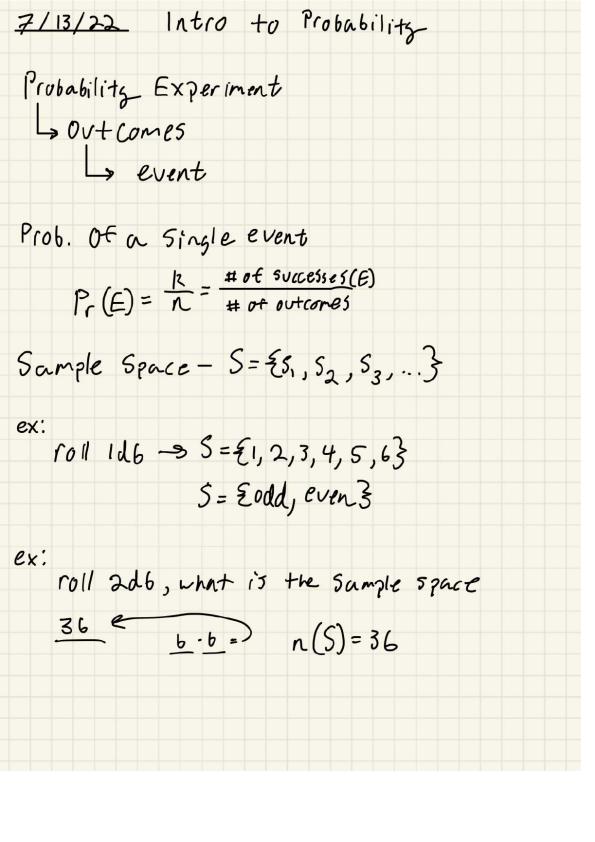 7/13/22 Intro to Probability
Probability Experiment
↳ Outcomes
↳ event
Prob. of a single event
Pr(E) = k/n = # of successes(E) / # of outcomes
Sample Space – S={S₁, S₂, S₃, ...}
ex:
roll 1d6 → S={1, 2, 3, 4, 5, 6}
S= {odd, even}
ex:
roll 2d6, what is the sample space
36 ← 6 · 6 = n(S) = 36